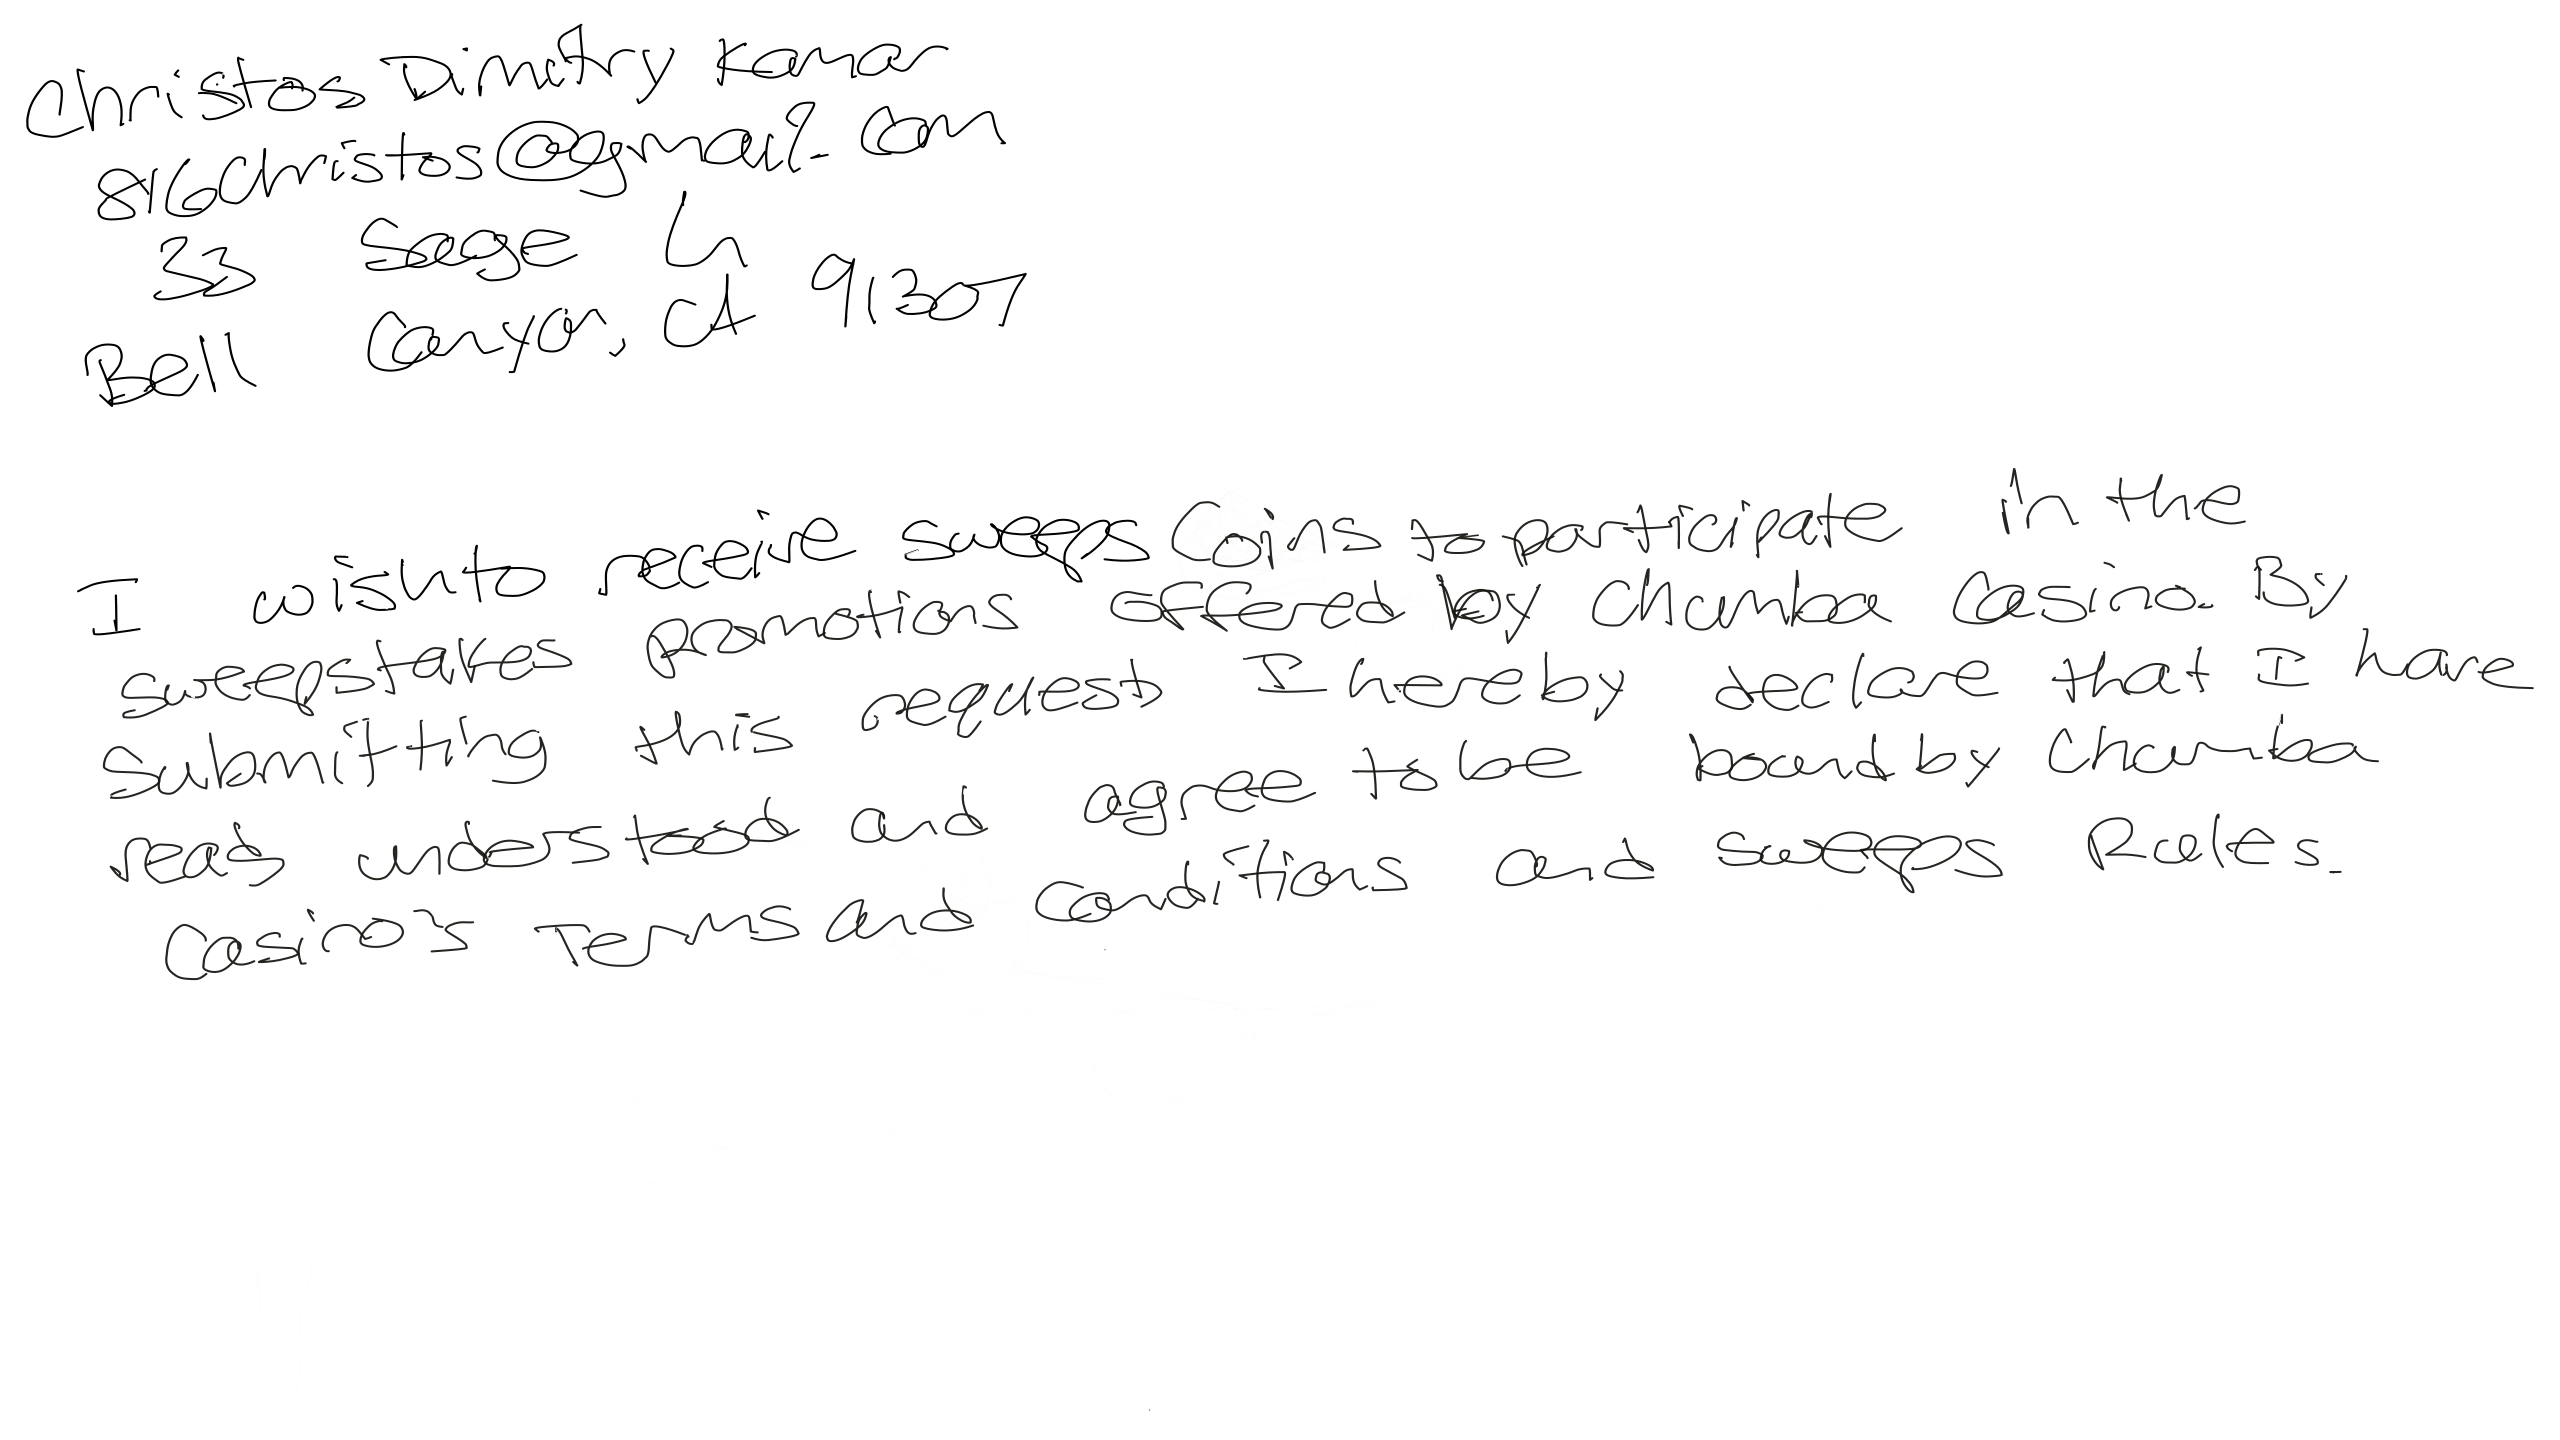 Christos Dimitry Kamar
816Christos@gmail.com
33 Sage Ln
Bell Canyon, CA 91307
I wish to receive sweeps Coins to participate in the
sweepstakes promotions offered by Chumba Casino. By
submitting this request I hereby declare that I have
read understood and agree to be bound by Chumba
Casino's Terms and Conditions and sweeps Rules.